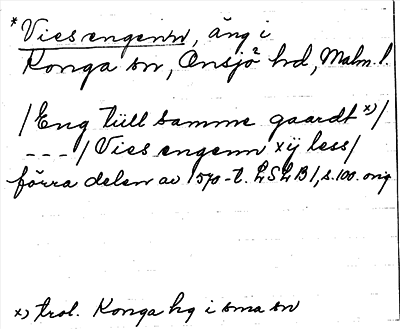 *Viesengenn, äng i
Konga sn, Onsjö hd, Malm. l.
/Eng tüll samme gaardt x)/
--- / Viesengenn xÿ less/
förra delen av 1570-t. LSLB1, s. 100. orig
x) trol. Konga hg i sma sn